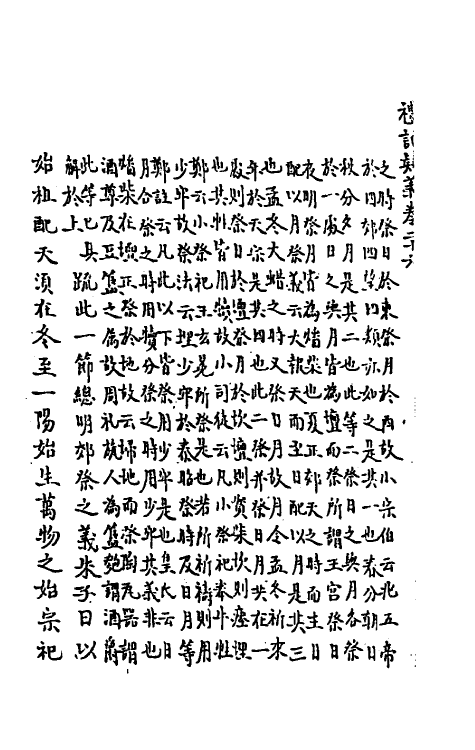 禮記疑義卷二十六
之時日於東祭月於西故小宗伯云兆五帝
於四郊四望四類亦如之是共一也春分朝日
秋分夕月是其二也此等二祭日之與月各祭
於一處日之與月皆為壇而祭所謂王宮祭日
夜明祭月皆為燔柴也夏正郊天之時而主日
配以月祭義云大報天而主日配以月是其三
也孟冬大蜡之時又祭日月故月令孟冬祈來
年於天宗是其四也此二日月并祭日月共在一
處則祭日於壇祭月於坎壇則實柴坎則瘞埋
也其牲皆用犢故小司徒云凡小祭祀奉牛牲
鄭云小祭祀王玄冕所祭是也若所祈禱則用
少牢故祭法云埋少牢於泰昭祭時及日月等
鄭註云凡此以下皆祭用少牢是也皇氏云日
月合祭之時用犢分祭之時用少牢共義非也
燔柴在壇正祭於地故云掃地而祭陶瓦器謂
酒尊及豆簋之屬故周禮旊人為簋匏謂酒爵
此等已具
解於上
疏此一節總明郊祭之義朱子曰以
始祖配天須在冬至一陽始生萬物之始宗祀